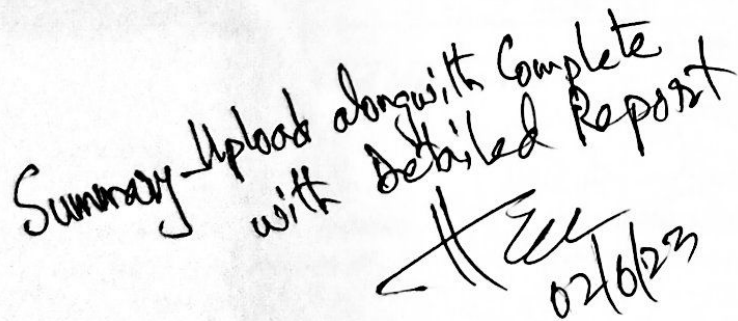 Summary Upload alongwith Complete
with Detailed Report
02/6/23